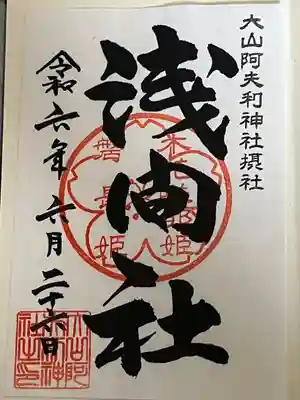 大山阿夫利神社摂社
浅間社
令和六年六月二十六日
木花咲耶姫
磐長姫